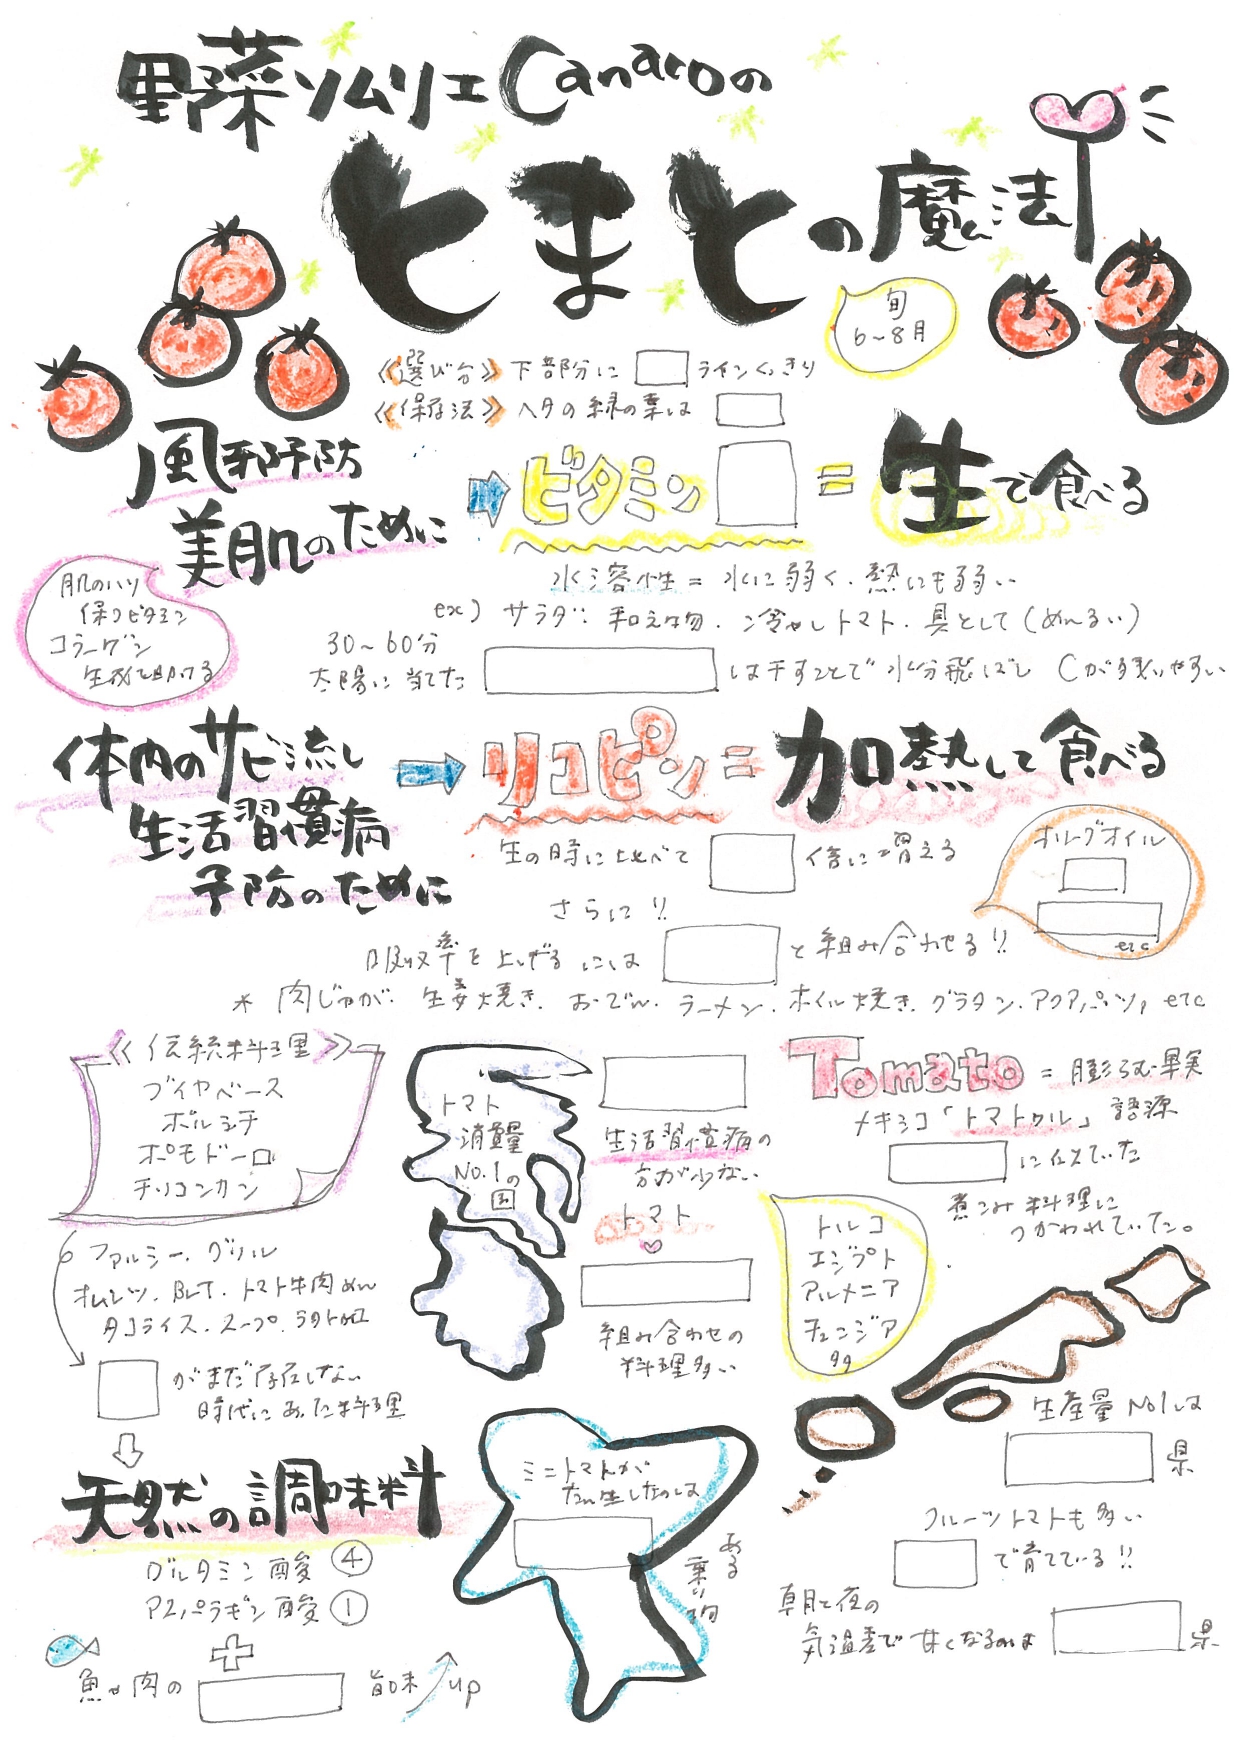 野菜ソムリエCanaroの
とまとの魔法
旬
6～8月
《選び方》下部分に ラインくっきり
《保存法》ヘタの緑の葉は
風邪予防
美肌のために
ビタミン = 生で食べる
水溶性 = 水に弱く、熱にも弱い
肌のハリ
保つビタミン
コラーゲン
生成を助ける
ex) サラダ・和え物・冷やしトマト・具として(めんるい)
30～60分
太陽に当てた は干すことで水分飛ばし Cが残りやすい
体内のサビ流し
生活習慣病
予防のために
リコピン = 加熱して食べる
生の時に比べて 倍に増える
オリーブオイル
etc
さらに!!
吸収率を上げるには と組み合わせる!!
* 肉じゃが・生姜焼き・おでん・ラーメン・ホイル焼き・グラタン・アクアパッツァ etc
《伝統料理》
ブイヤベース
ボルシチ
ポモドーロ
チリコンカン
ファルシー・グリル
オムレツ・BLT・トマト牛肉めん
タコライス・スープ・ラタトゥイユ
がまだ存在しない
時代にあった料理
天然の調味料
グルタミン酸 ④
アスパラギン酸 ①
魚や肉の 旨味 up
トマト
消費量
No.1の
国
生活習慣病の
方が少ない
トマト
組み合わせの
料理多い
Tomato = 膨らむ果実
メキシコ「トマトゥル」語源
に似ていた
煮こみ料理に
つかわれていた。
トルコ
エジプト
アルメニア
チュニジア
多
ミニトマトが
たん生したのは
ある
乗り物
生産量No1は
県
フルーツトマトも多い
で育てている!!
朝と夜の
気温差で甘くなるのは 県